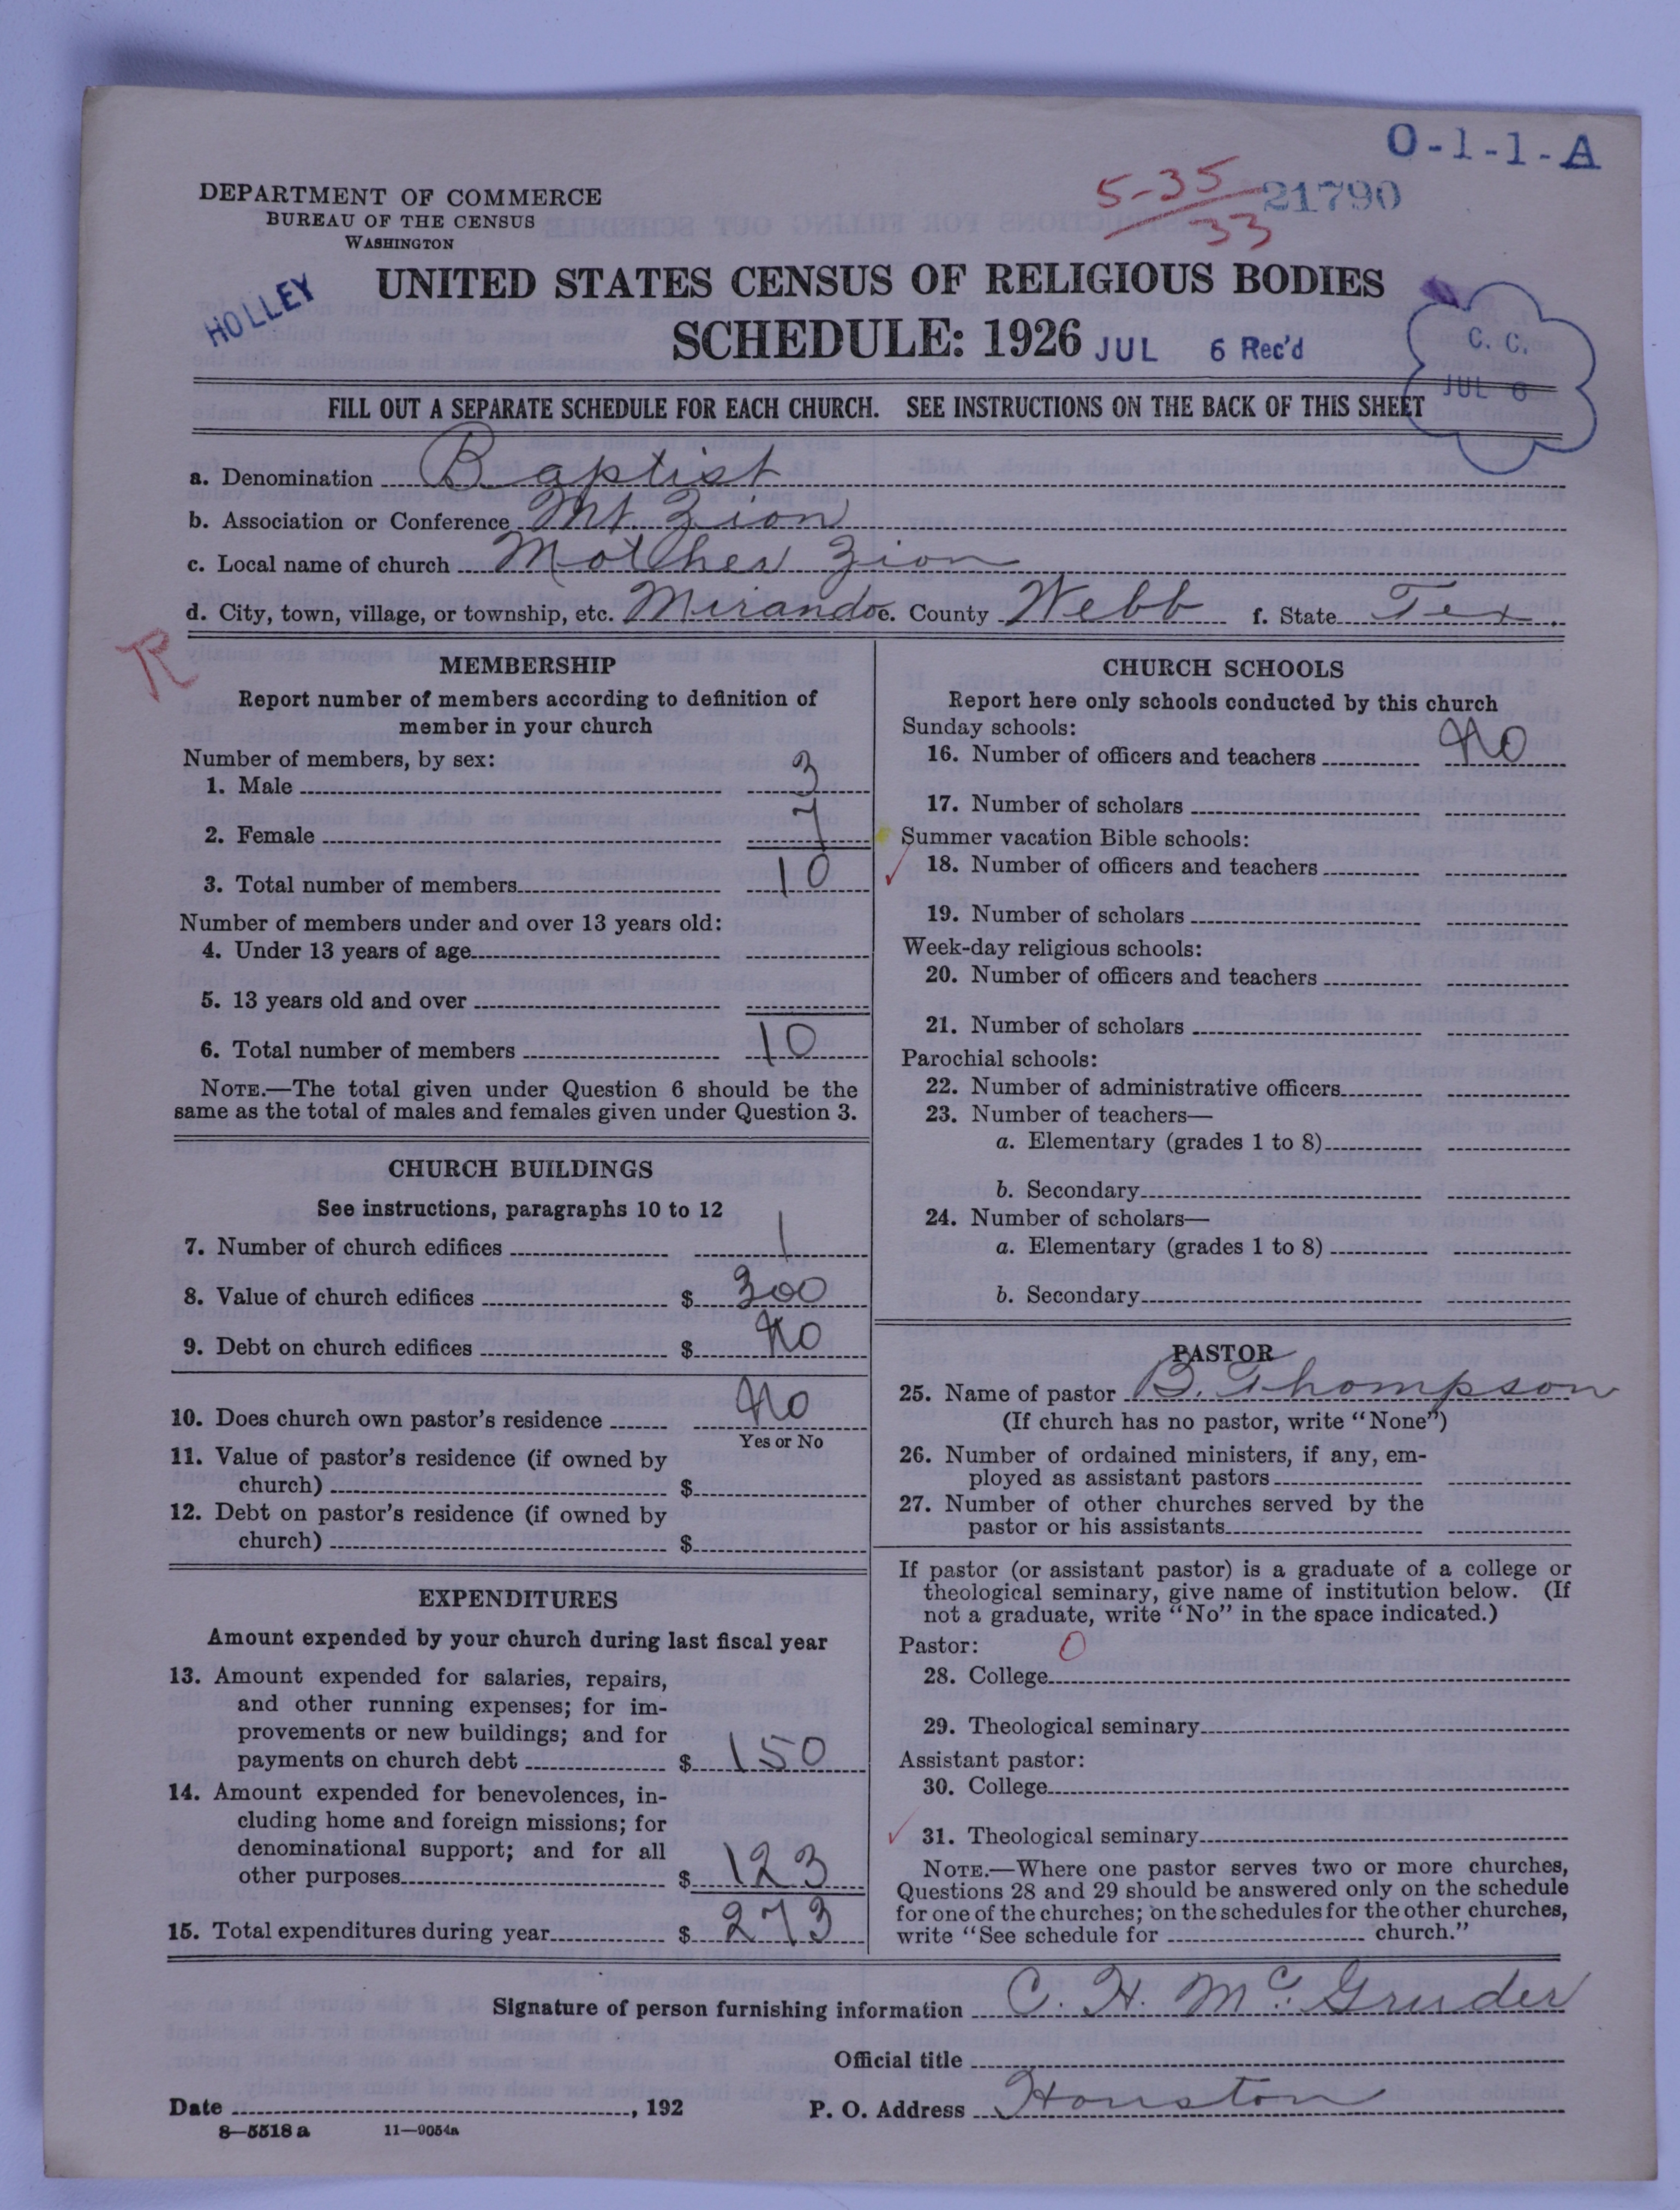 O-1-1-A
5-35/33 21790
DEPARTMENT OF COMMERCE
BUREAU OF THE CENSUS
WASHINGTON
HOLLEY
UNITED STATES CENSUS OF RELIGIOUS BODIES
SCHEDULE: 1926 JUL 6 Rec'd
C. C.
JUL 6
FILL OUT A SEPARATE SCHEDULE FOR EACH CHURCH. SEE INSTRUCTIONS ON THE BACK OF THIS SHEET
a. Denomination Baptist
b. Association or Conference Mt. Zion
c. Local name of church Mother Zion
d. City, town, village, or township, etc. Mirando e. County Webb f. State Tex.
R
MEMBERSHIP
Report number of members according to definition of
member in your church
Number of members, by sex:
1. Male 3
2. Female 7
3. Total number of members 10
Number of members under and over 13 years old:
4. Under 13 years of age
5. 13 years old and over
6. Total number of members 10
NOTE.—The total given under Question 6 should be the
same as the total of males and females given under Question 3.
CHURCH BUILDINGS
See instructions, paragraphs 10 to 12
7. Number of church edifices 1
8. Value of church edifices $ 300
9. Debt on church edifices $ No
10. Does church own pastor's residence No
Yes or No
11. Value of pastor's residence (if owned by
church) $
12. Debt on pastor's residence (if owned by
church) $
EXPENDITURES
Amount expended by your church during last fiscal year
13. Amount expended for salaries, repairs,
and other running expenses; for im-
provements or new buildings; and for
payments on church debt $ 150
14. Amount expended for benevolences, in-
cluding home and foreign missions; for
denominational support; and for all
other purposes $ 123
15. Total expenditures during year $ 273
CHURCH SCHOOLS
Report here only schools conducted by this church
Sunday schools:
16. Number of officers and teachers No
17. Number of scholars
Summer vacation Bible schools:
18. Number of officers and teachers
19. Number of scholars
Week-day religious schools:
20. Number of officers and teachers
21. Number of scholars
Parochial schools:
22. Number of administrative officers
23. Number of teachers—
a. Elementary (grades 1 to 8)
b. Secondary
24. Number of scholars—
a. Elementary (grades 1 to 8)
b. Secondary
PASTOR
25. Name of pastor B. Thompson
(If church has no pastor, write "None")
26. Number of ordained ministers, if any, em-
ployed as assistant pastors
27. Number of other churches served by the
pastor or his assistants
If pastor (or assistant pastor) is a graduate of a college or
theological seminary, give name of institution below. (If
not a graduate, write "No" in the space indicated.)
Pastor: 0
28. College
29. Theological seminary
Assistant pastor:
30. College
31. Theological seminary
NOTE.—Where one pastor serves two or more churches,
Questions 28 and 29 should be answered only on the schedule
for one of the churches; on the schedules for the other churches,
write "See schedule for church."
Signature of person furnishing information C. H. McGruder
Official title
Date , 192 P. O. Address Houston
8—5518 a 11—9054a